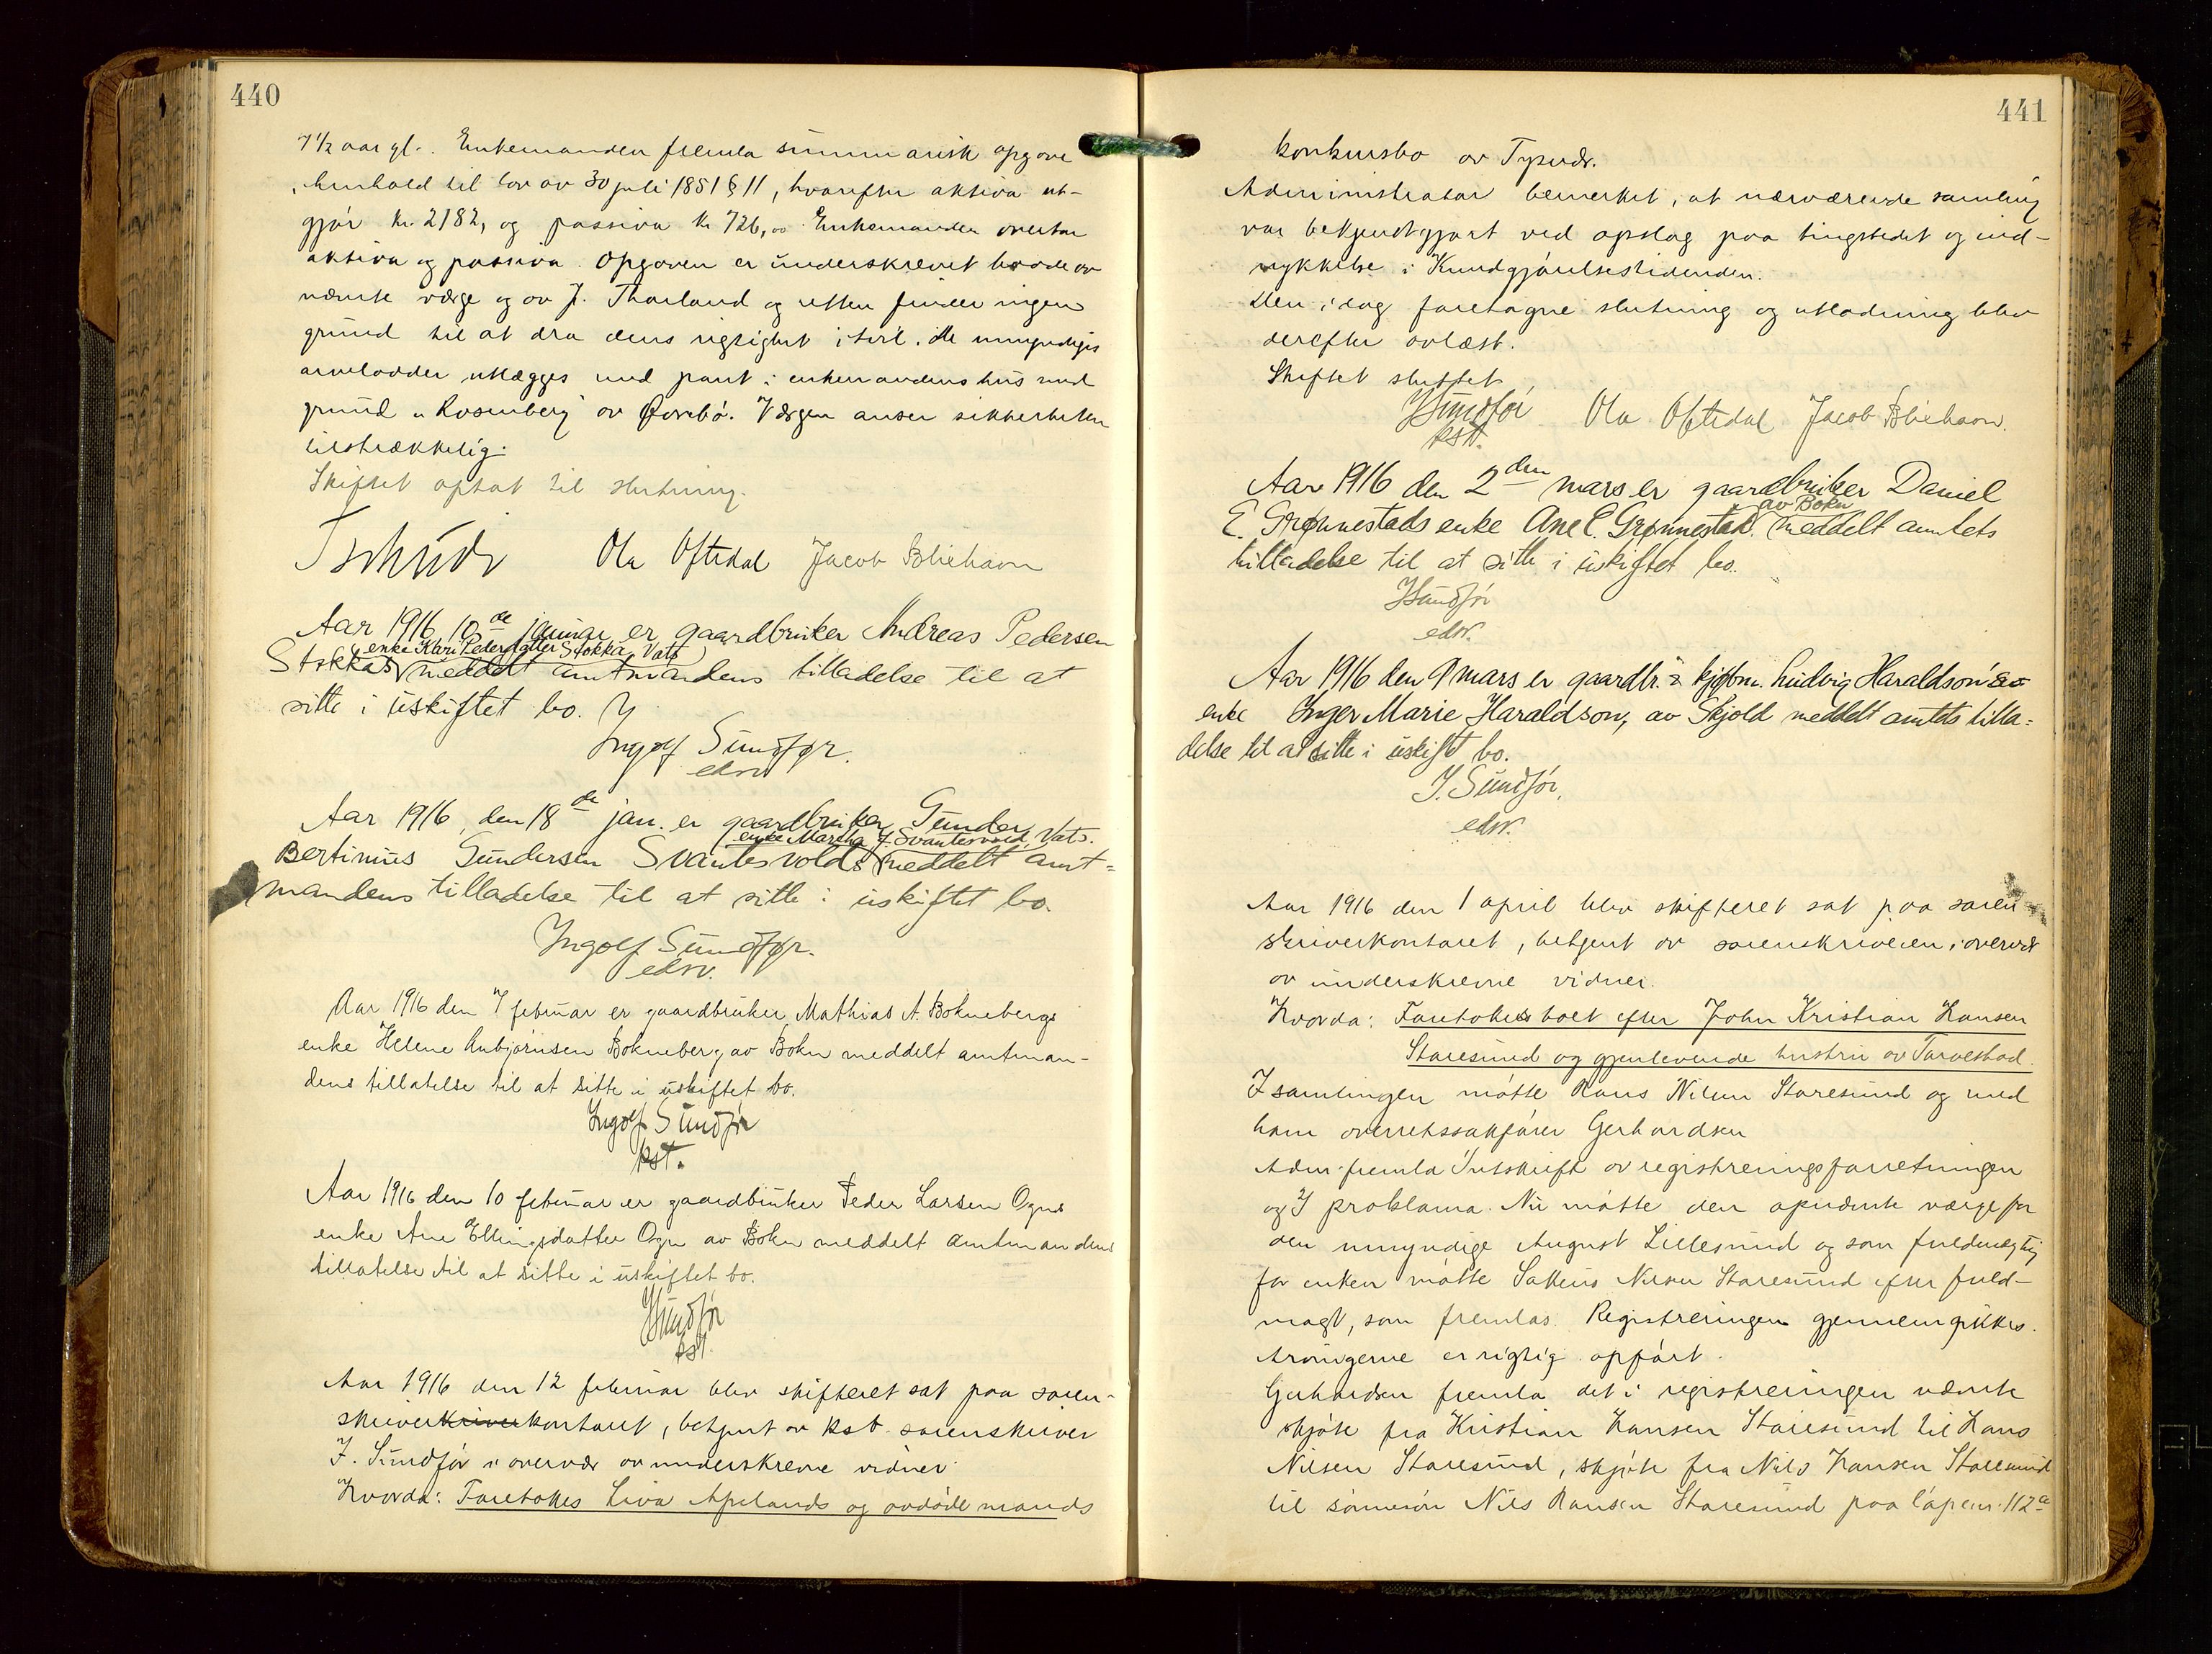 440
7 1/2 aar gl. Enkemanden fremla summarisk opgave
i henhold til lov av 30 juli 1851 § 11, hvorefter aktiva ut-
gjør kr. 2182, og passiva kr 726,00 Enkemanden overtar
aktiva og passiva. Opgaven er underskrevet baade av
nævnte værge og av J. Thorland og retten finder ingen
grund til at dra dens rigtighet i tvil. De umyndiges
arvelodder utlægges med pant i enkemandens hus med
grund "Rosenberg" av Førebø. Værgen anser sikkerheten
tilstrækkelig.
Skiftet optat til slutning.
Tschudi Ola Oftedal Jacob Bliehavn
Aar 1916 10de januar er gaardbruker Andreas Pedersen
enke Kari Pedersdatter Stokka, Vats
Stokkas meddelt amtmandens tilladelse til at
sitte i uskiftet bo.
Ingolf Sundfør.
edsv.
Aar 1916, den 18de jan. er gaardbruker Gunder
enke Martha J. Svantesvold, Vats.
Bertinius Gundersen Svantesvolds meddelt amt=
mandens tilladelse til at sitte i uskiftet bo.
Ingolf Sundfør.
edsv.
Aar 1916 den 7 februar er gaardbruker Mathias A. Bokneberge
enke Helene Anbjørnsen Bokneberg av Bokn meddelt amtman-
dens tillatelse til at sitte i uskiftet bo.
Ingolf Sundfør
kst.
Aar 1916 den 10 februar er gaardbruker Peder Larsen Ognes
enke Ane Ellingsdatter Ogn av Bokn meddelt amtmandens
tillatelse til at sitte i uskiftet bo.
I Sundfør
kst.
Aar 1916 den 12 februar blev skifteret sat paa soren-
skriverkriverkontoret, betjent av kst. sorenskriver
I. Sundfør i overvær av underskrevne vidner
Hvorda: Foretokes Liva Apelands og avdøde mands
441
konkursbo av Tysvær.
Administrator bemerket, at nærværende samling
var bekjendtgjort ved opslag paa tingstedet og ind-
rykkelse i Kundgjørelsestidenden.
Den idag foretagne slutning og utlodning blev
derefter avlæst.
Skiftet sluttet
I Sundfør Ola Oftedal Jacob Bliehavn.
kst.
Aar 1916 den 2den mars er gaardbruker Daniel
av Bokn
E. Grønnestads enke Ane E. Grønnestad meddelt amtets
tilladelse til at sitte i uskiftet bo.
I Sundfør
edsv.
Aar 1916 den 9 mars er gaardbr. & kjøbm. Ludvig Haraldson's
enke Inger Marie Haraldson, av Skjold meddelt amtets tilla=
delse til at sitte i uskift bo.
I. Sundfør.
edsv.
Aar 1916 den 1 april blev skifteret sat paa soren-
skriverkontoret, betjent av sorenskriveren i overvær
av underskrevne vidner.
Hvorda: Foretokes boet efter John Kristian Hansen
Storesund og gjenlevende hustru av Torvestad.
I samlingen møtte Hans Nilsen Storesund og med
ham overretssakfører Gerhardsen
Adm. fremla utskrift av registreringsforretningen
og proklama. Nu møtte den opnævnte værge for
den umyndige August Lillesund og som fuldmægtig
for enken møtte Sakeus Nilsen Storesund efter fuld-
magt, som fremlas. Registreringen gjennemgikkes.
Arvingerne er rigtig opført.
Gerhardsen fremla det i registreringen nævnte
skjøte fra Kristian Hansen Storesund til Hans
Nilsen Storesund, skjøte fra Nils Hansen Storesund
til sønnesøn Nils Hansen Storesund paa løpenr. 112a